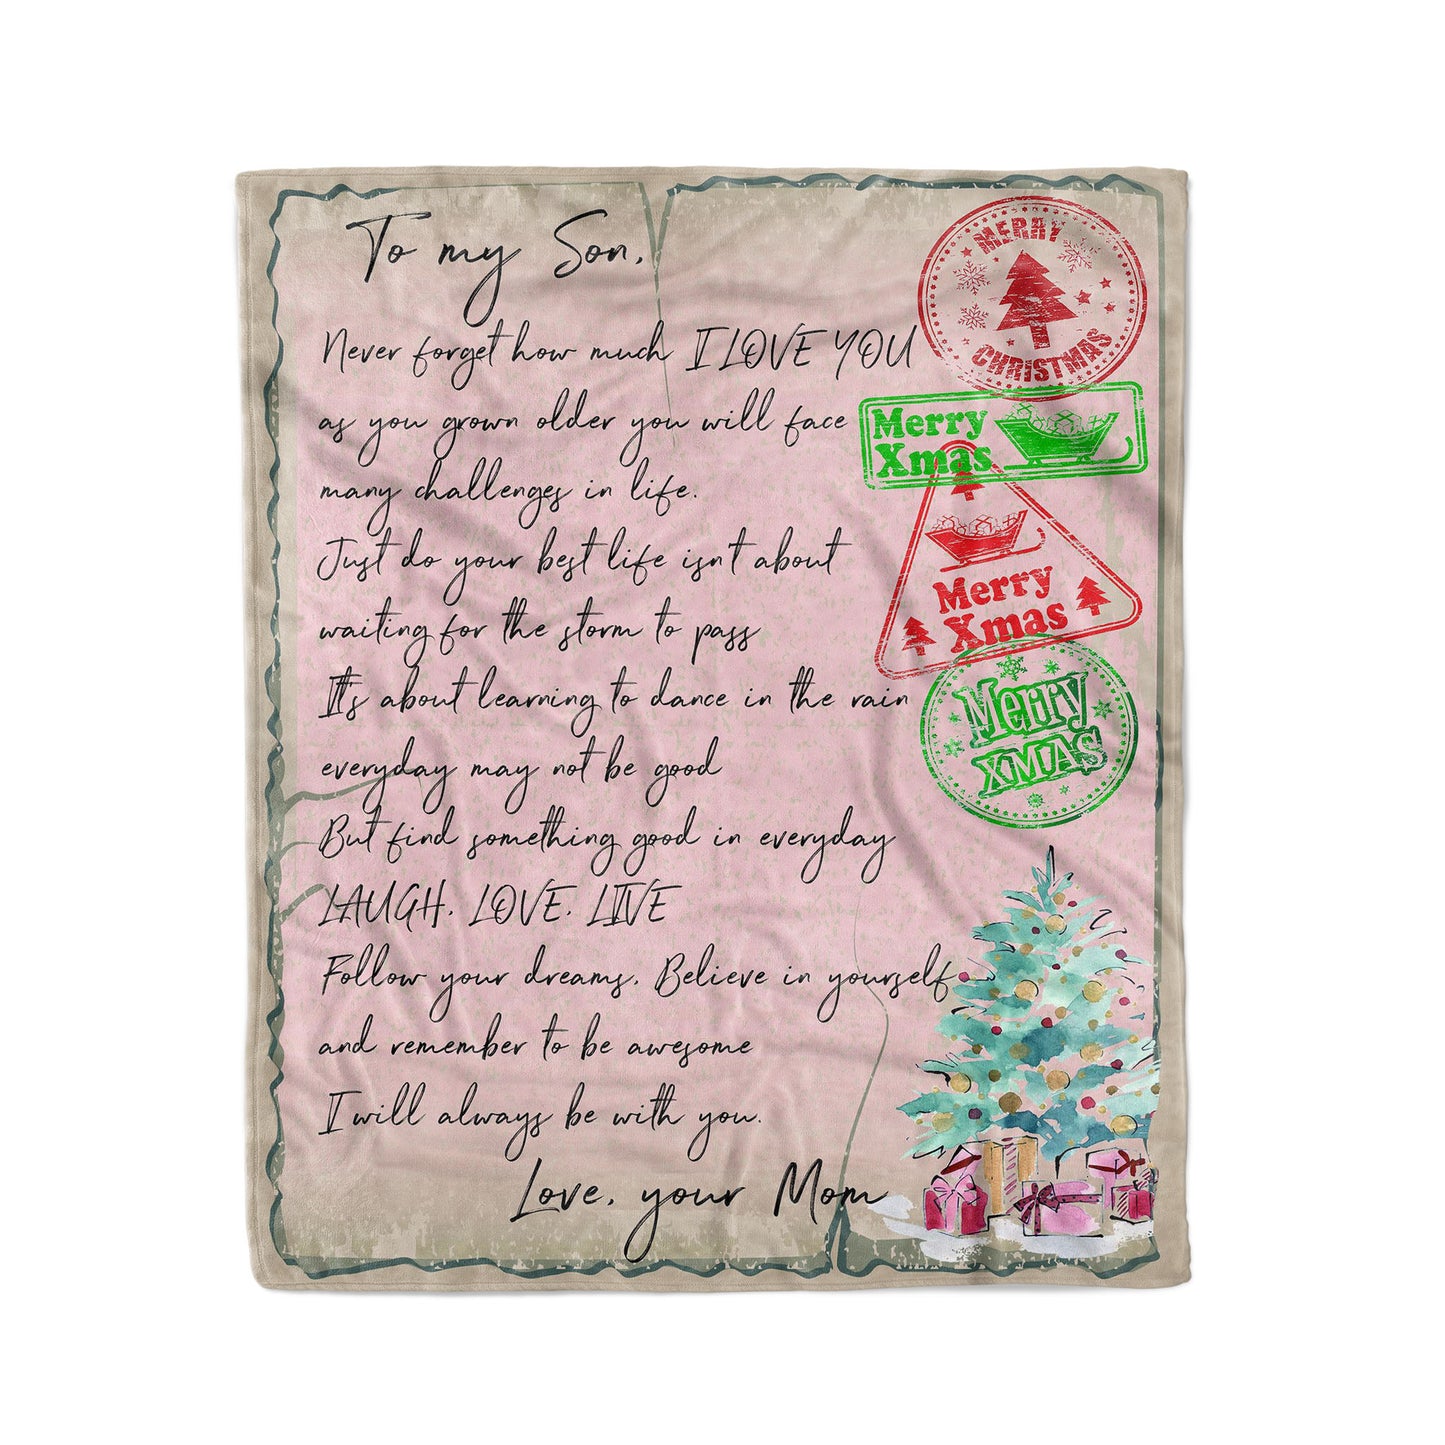 To my Son,
Never forget how much I LOVE YOU
as you grown older you will face
many challenges in life.
Just do your best life isn't about
waiting for the storm to pass
It's about learning to dance in the rain
everyday may not be good
But find something good in everyday
LAUGH. LOVE. LIVE
Follow your dreams. Believe in yourself
and remember to be awesome
I will always be with you.
Love, your Mom
MERRY
CHRISTMAS
Merry
Xmas
Merry
Xmas
Merry
XMAS